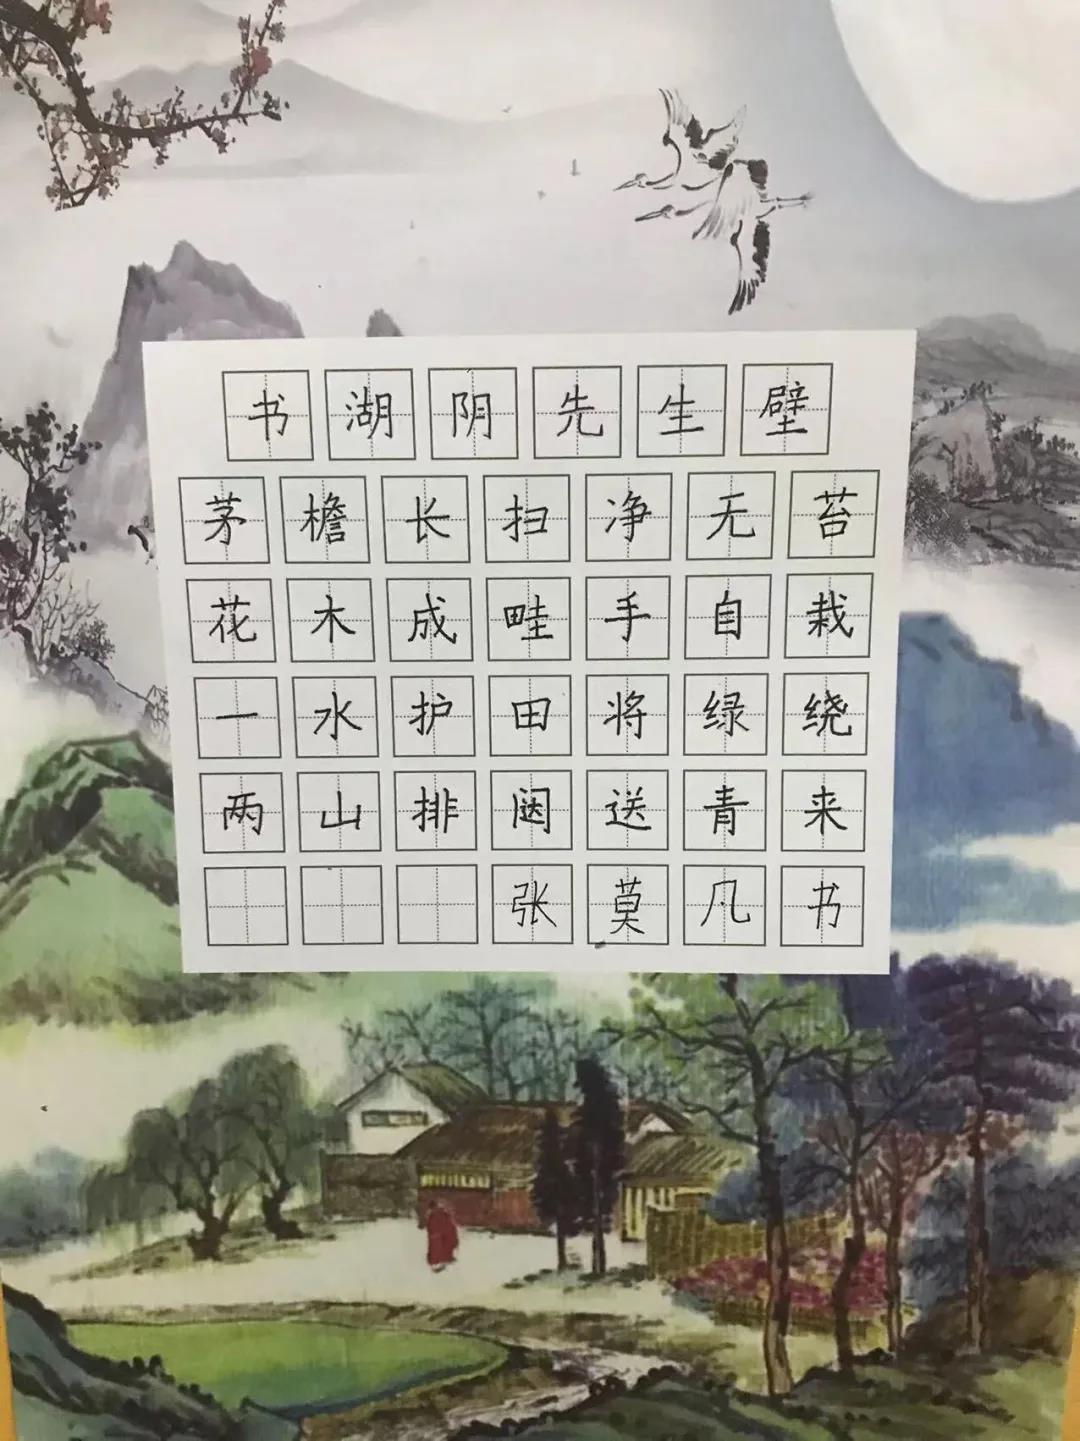 书湖阴先生壁
茅檐长扫净无苔
花木成畦手自栽
一水护田将绿绕
两山排闼送青来
张莫凡书